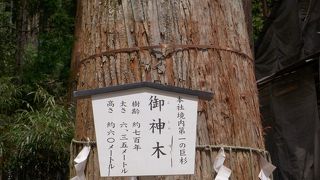 本社境内第一の巨杉
御神木
樹齢 約七百年
太さ 六.三五メートル
高さ 約六〇メートル